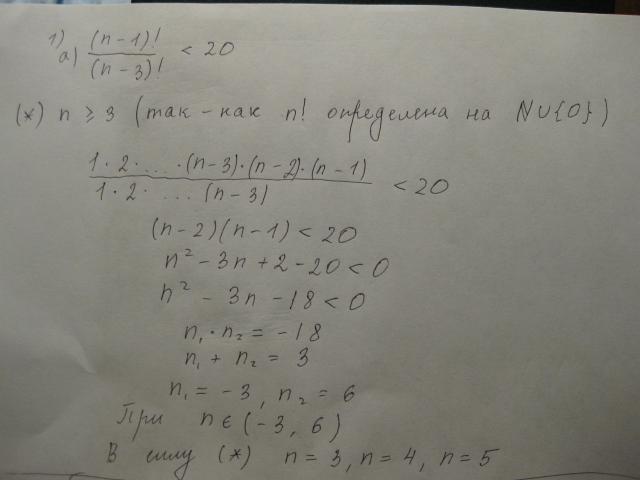 1)
а) (n-1)! / (n-3)! < 20
(*) n ⩾ 3 (так-как n! определена на N∪{0})
1·2·...·(n-3)·(n-2)·(n-1) / 1·2·...(n-3) < 20
(n-2)(n-1) < 20
n² - 3n + 2 - 20 < 0
n² - 3n - 18 < 0
n₁·n₂ = -18
n₁ + n₂ = 3
n₁ = -3, n₂ = 6
При n ∈ (-3, 6)
В силу (*) n = 3, n = 4, n = 5